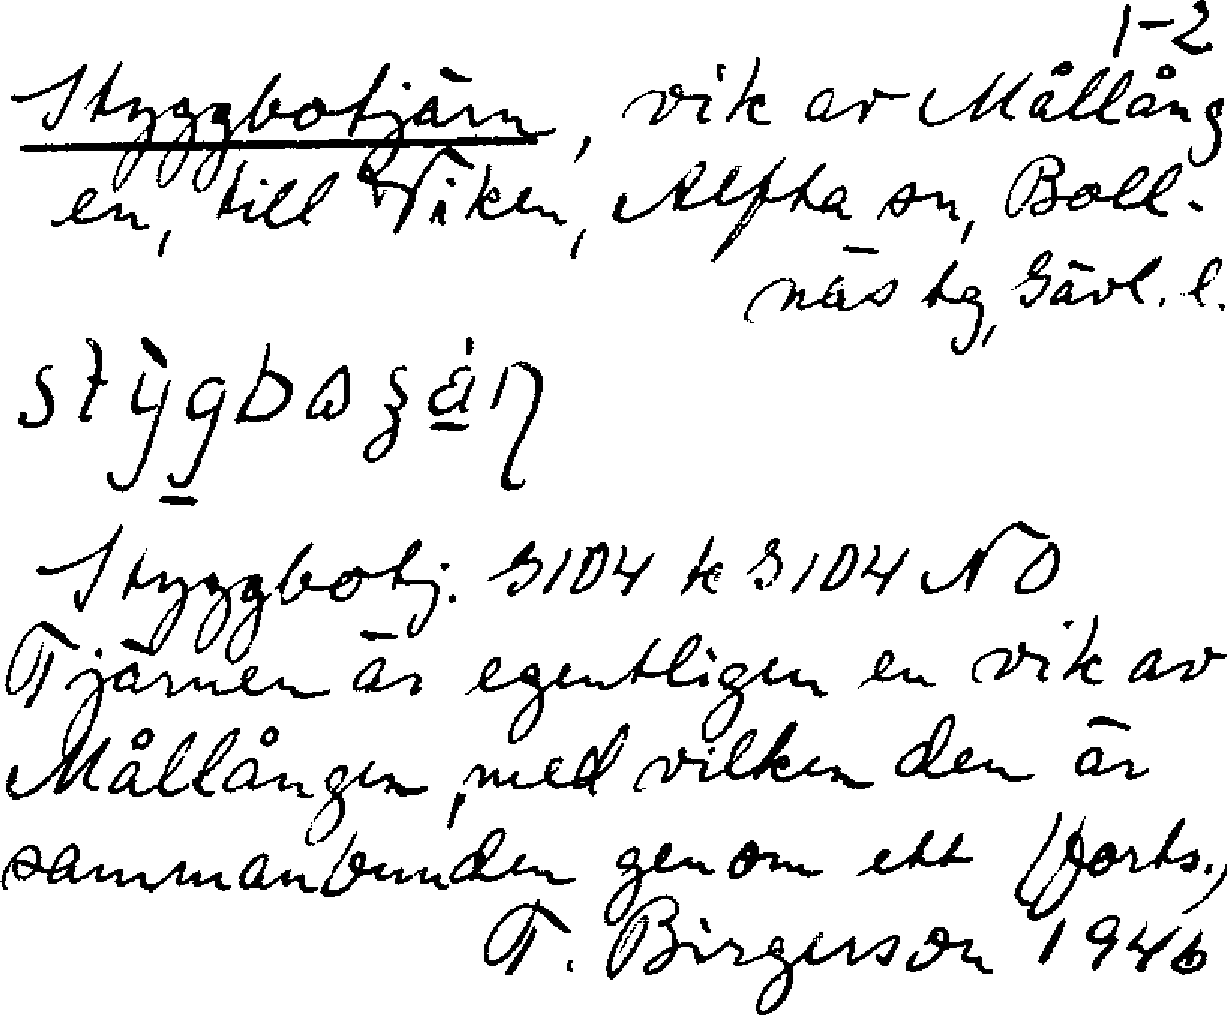 1-2
Styggbotjärn, vik av Mållång
en, till Viken, Alfta sn, Boll-
näs tg, Gävl. l.
Styggbotj. G104 k G104 NO
Tjärnen är egentligen en vik av
Mållången, med vilken den är
sammanbunden genom ett (forts.,
T. Birgerson 1946